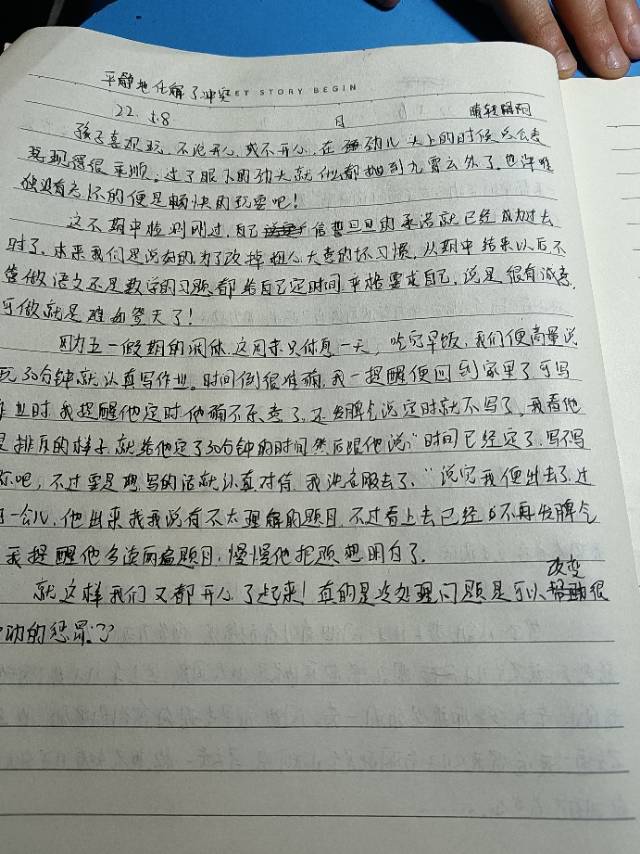 平静地化解了冲突ET STORY BEGIN
22. 5.8 日 晴转阴雨
孩子喜欢玩,不论开心或不开心,在劲儿头上的时候总会
表现得很乖顺,过了眼下的劲大就什么都抛到九霄云外了,也许唯
独没有忘怀的便是畅快的玩耍吧!
这不期中检测刚过,自己信誓旦旦的承诺就已经成为过去
时了,本来我们是说好的为了改掉粗心大意的坏习惯,从期中结束以后不
管做语文还是数学的习题都给自己定时间,严格要求自己,说是很有诚意,
可做就是难如登天了!
因为五一假期的调休,这周末只休息一天,吃完早饭,我们便商量说
玩30分钟就认真写作业。时间倒很准确,我一提醒便回到家里了,可写
作业时,我提醒他定时他确不乐意了,还发脾气说定时就不写了,我看他
是排斥的样子,就给他定了30分钟的时间,然后跟他说:"时间已经定了,写不写
你吧,不过要是想写的话就认真对待,我决不服去了。"说完我便出去了,过
了一会儿,他出来找我说有不太理解的题目,不过看上去已经不再发脾气
我提醒他多读两遍题目,慢慢他把题想明白了。
就这样我们又都开心了起来!真的是次处理问题是可以改变很